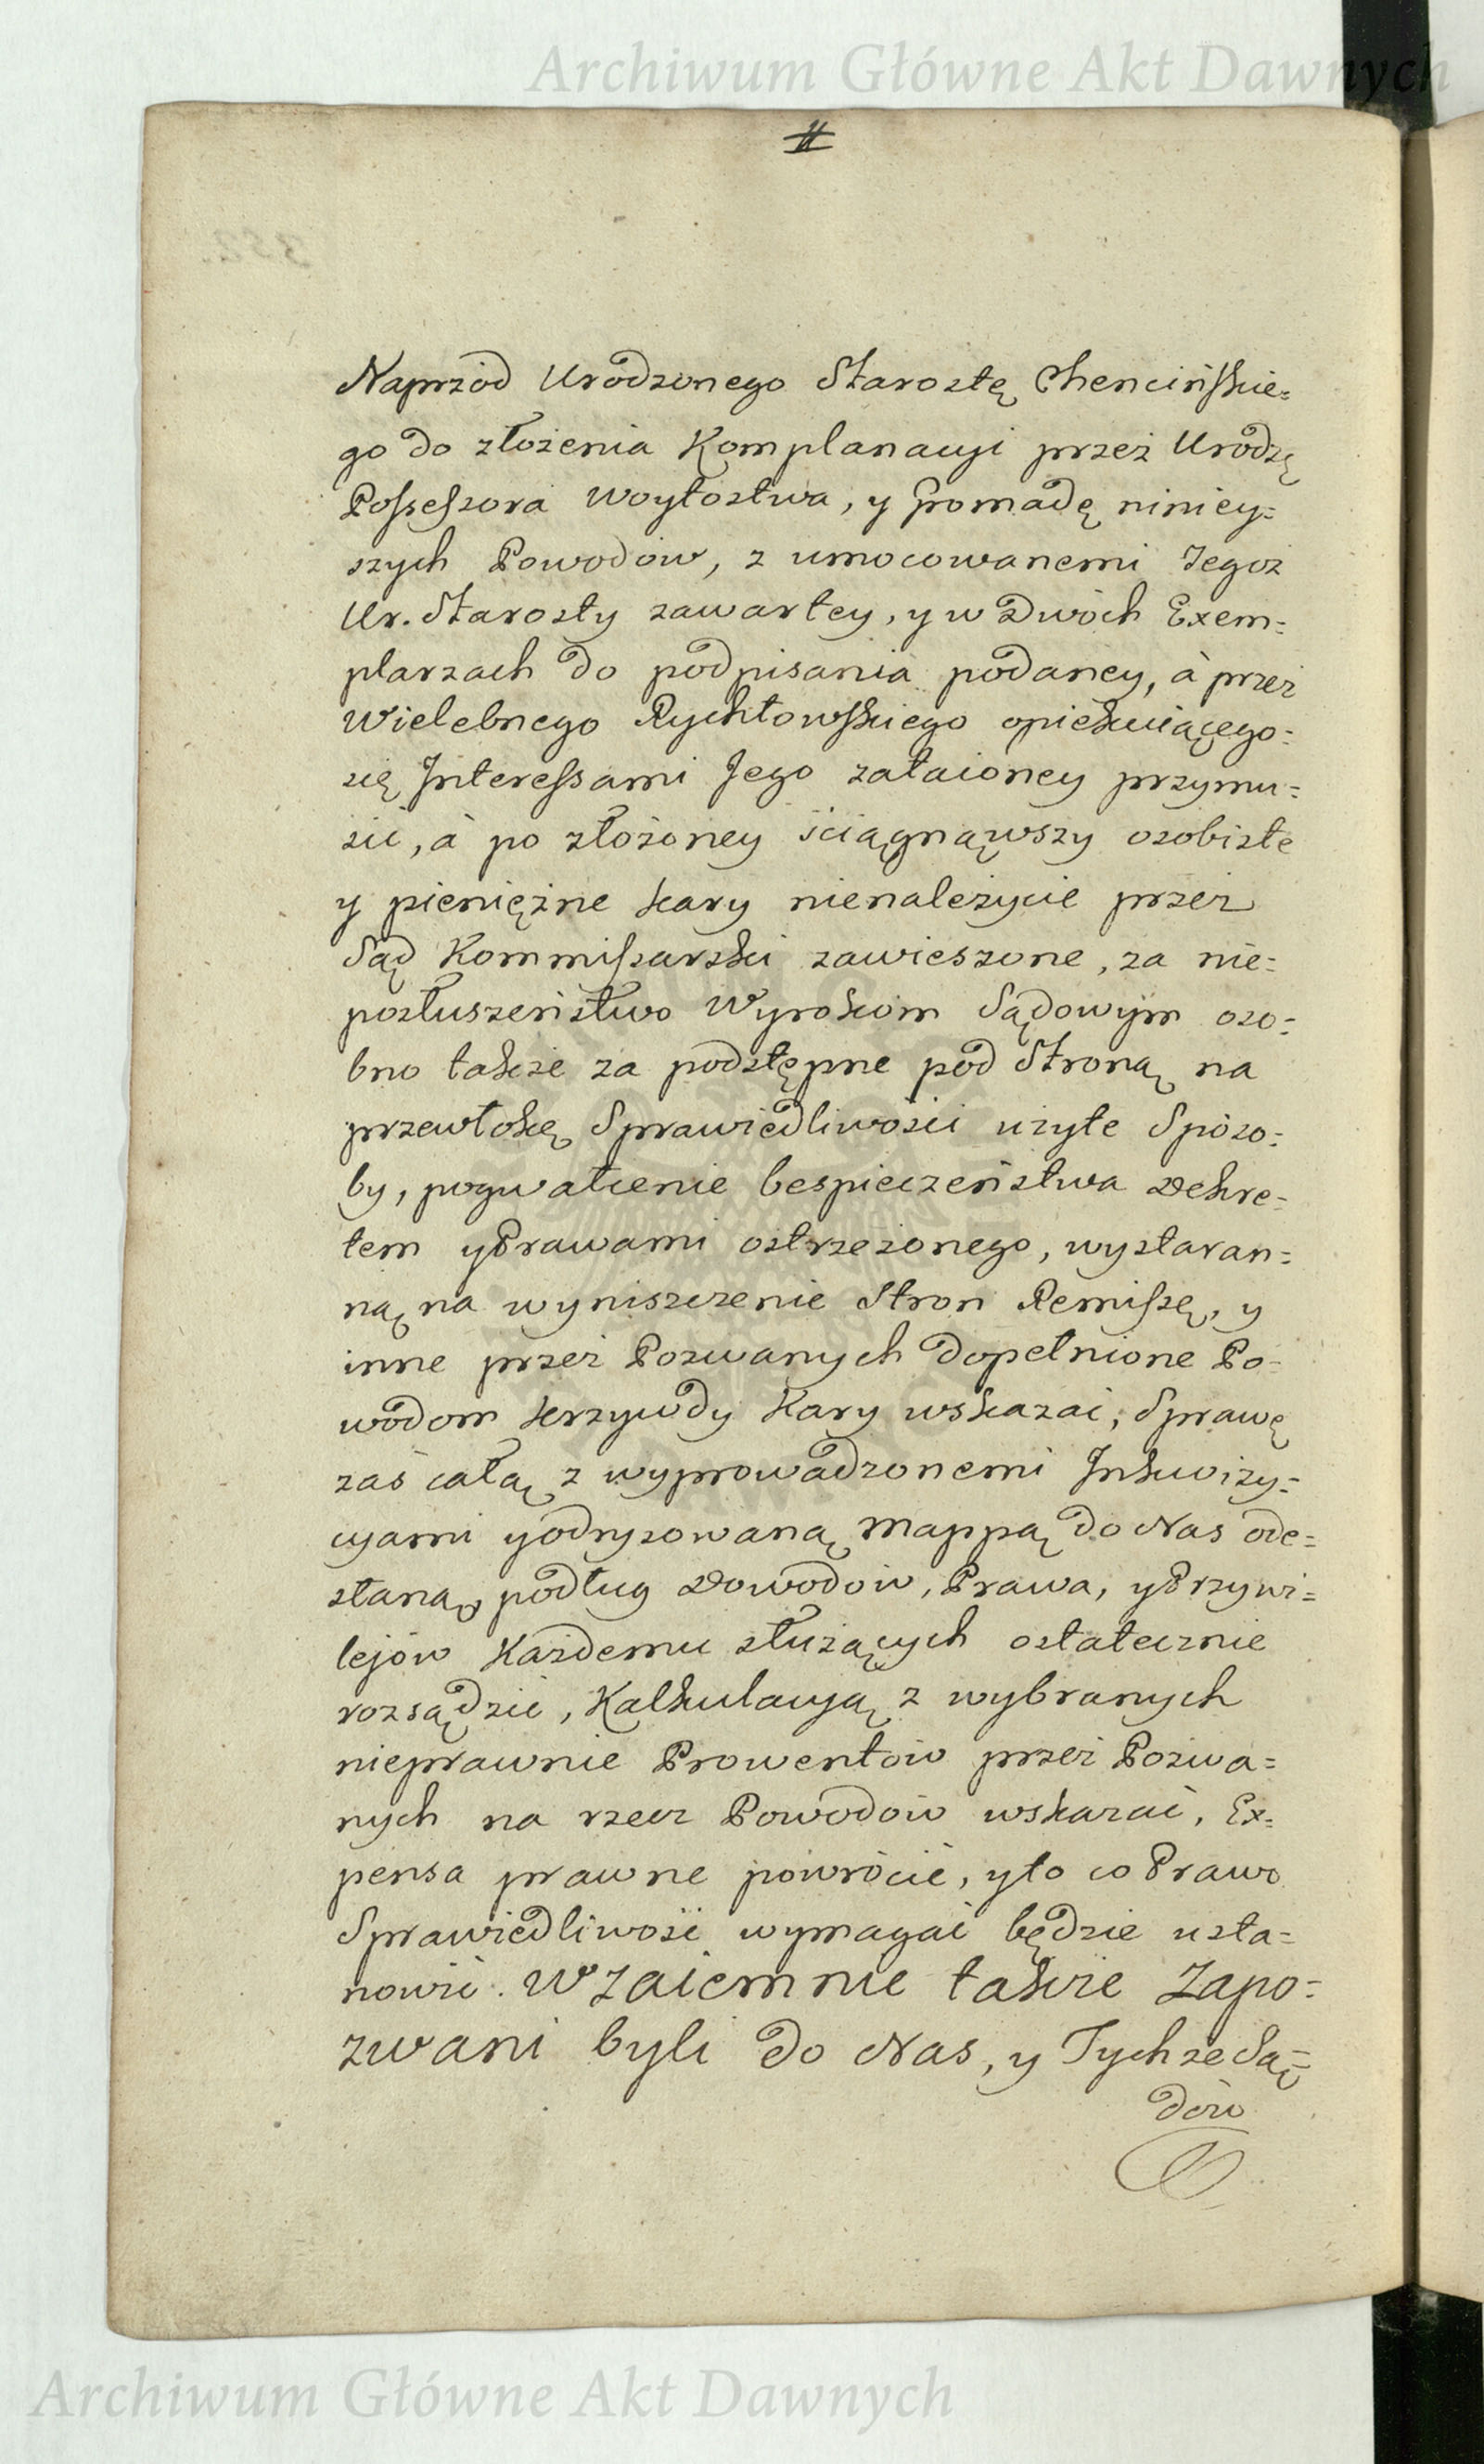 Archiwum Główne Akt Dawnych
Naprzód Urodzonego Starostę Chencińskie=
go do złożenia Komplanacyi przez Urodzę
Possessora Woytostwa, y Gromadę niniey=
szych Powodów, z umocowanemi Tegoż
Ur. Starosty zawartey, y w Dwóch Exem=
plarzach do podpisania podaney, à przez
Wielebnego Rychłowskiego opiekuiącego=
się Interessami Jego zataioney przymu=
sić, à po złożoney ściągnąwszy osobiste
y pieniężne kary nienależycie przez
Sąd Kommissarski zawieszone, za nie=
posłuszeństwo Wyrokom Sądowym oso=
bno także za podstępne pod Stroną na
przewłokę Sprawiedliwości użyte Sposo=
by, pogwałcenie bespieczeństwa Dekre=
tem y Prawami ostrzeżonego, wystaran=
ną na wyniszczenie Stron Remissę, y
inne przez Pozwanych dopełnione Po=
wodom krzywdy Kary wskazać, Sprawę
zaś całą z wyprowadzonemi Inkwizy=
cyami y odrysowaną Mappą do Nas ode=
słaną, podług Dowodów, Prawa, y Przywi=
lejów Każdemu służących ostatecznie
rozsądzić, Kalkulacyą z wybranych
nieprawnie Prowentów przez Pozwa=
nych na rzecz Powodów wskazać, Ex=
pensa prawne powrócić, y to co Prawo
Sprawiedliwość wymagać będzie usta=
nowić. Wzaiemnie także Zapo=
zwani byli do Nas, y Tychże Są=
dów
Archiwum Główne Akt Dawnych